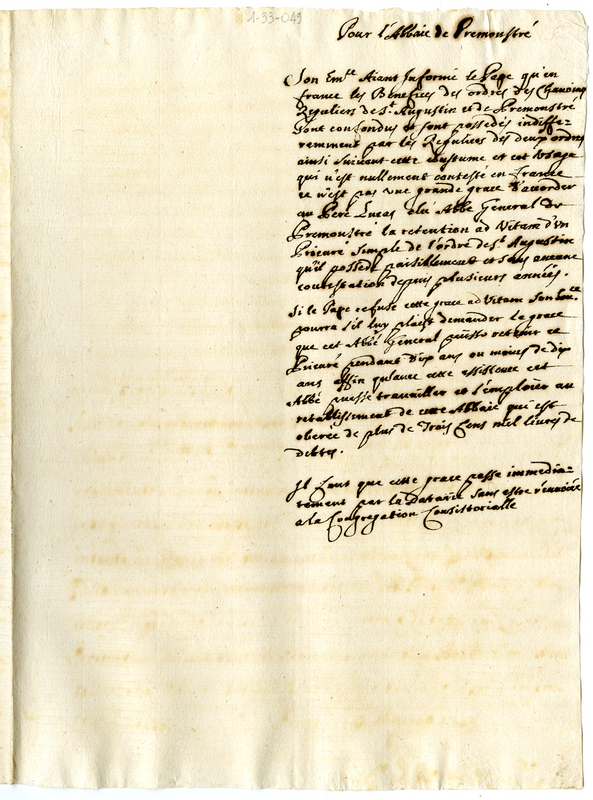 1-33-049
Pour l'Abbaie de Premonstré
Son Em.ce Aiant Informé le Pape qu'en
france les Benefices des ordres des Chanoines
Reguliers de St. Augustin et de Premonstré
sont confondus et sont possedés indiffe=
remment par les Reguliers des deux ordres
ainsi suivant cette Coustume et cet Usage
qui n'est nullement contesté en france
ce n'est pas une grande grace d'accorder
au Pere Lucas elû Abbé General de
Premonstré la retention ad Vitam d'un
Prieuré simple de l'ordre de St. Augustin
qu'il possede paisiblement et sans aucune
contestation depuis plusieurs années.
Si le Pape refuse cette grace ad Vitam Son Em.ce
pourra s'il luy plaist demander la grace
que cet Abbé General puisse retenir ce
Prieuré pendant dix ans ou moins de dix
ans affin qu'avec cette assistance cet
Abbé puisse travailler et s'emploier au
retablissement de cette Abbaie qui est
oberée de plus de Trois Cens mil livres de
debtes.
Il faut que cette grace passe immedia=
tement par la Daterie sans estre renvoiée
a la Congregation Consistorialle